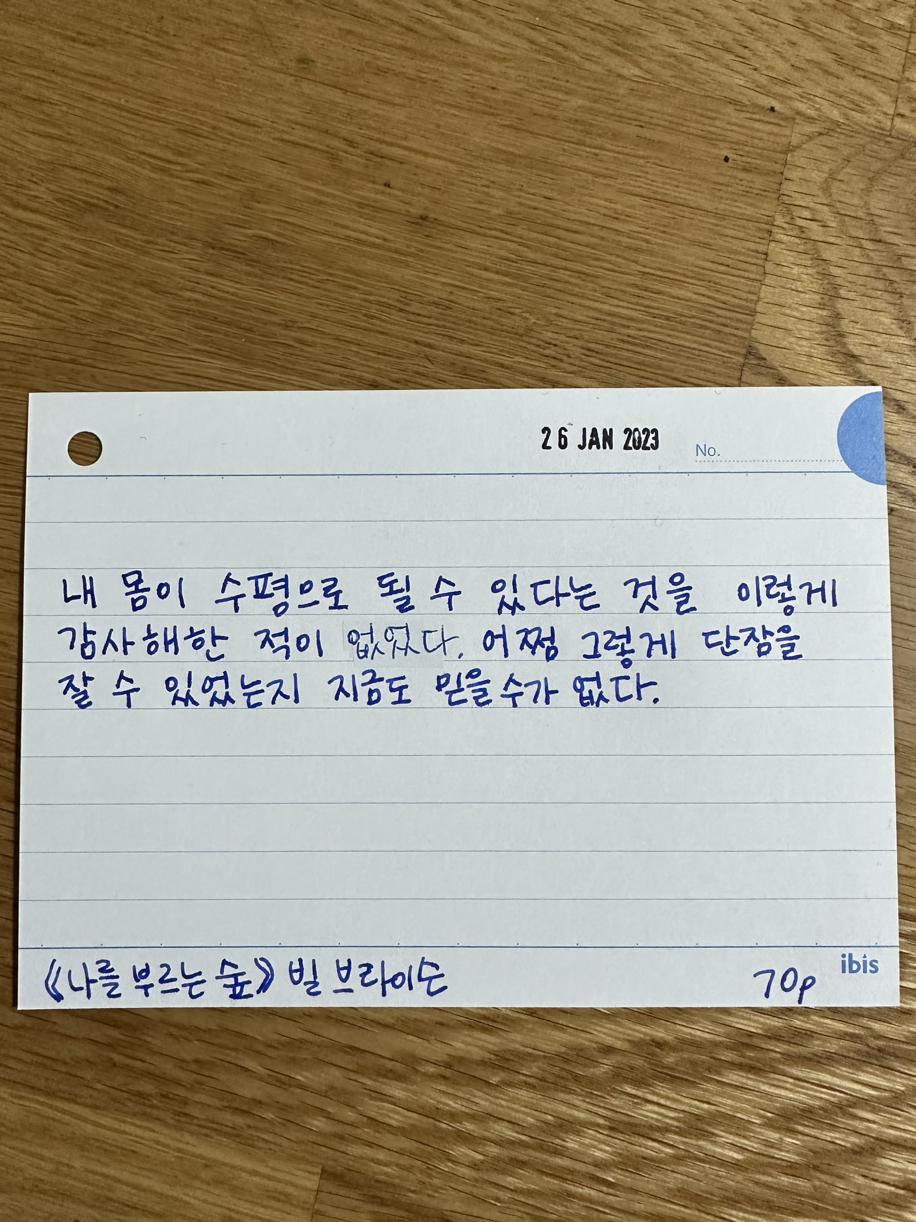 26 JAN 2023
No.
내 몸이 수평으로 될 수 있다는 것을 이렇게
감사해한 적이 없었다. 어쩜 그렇게 단잠을
잘 수 있었는지 지금도 믿을 수가 없다.
《나를 부르는 숲》 빌 브라이슨 70p
ibis